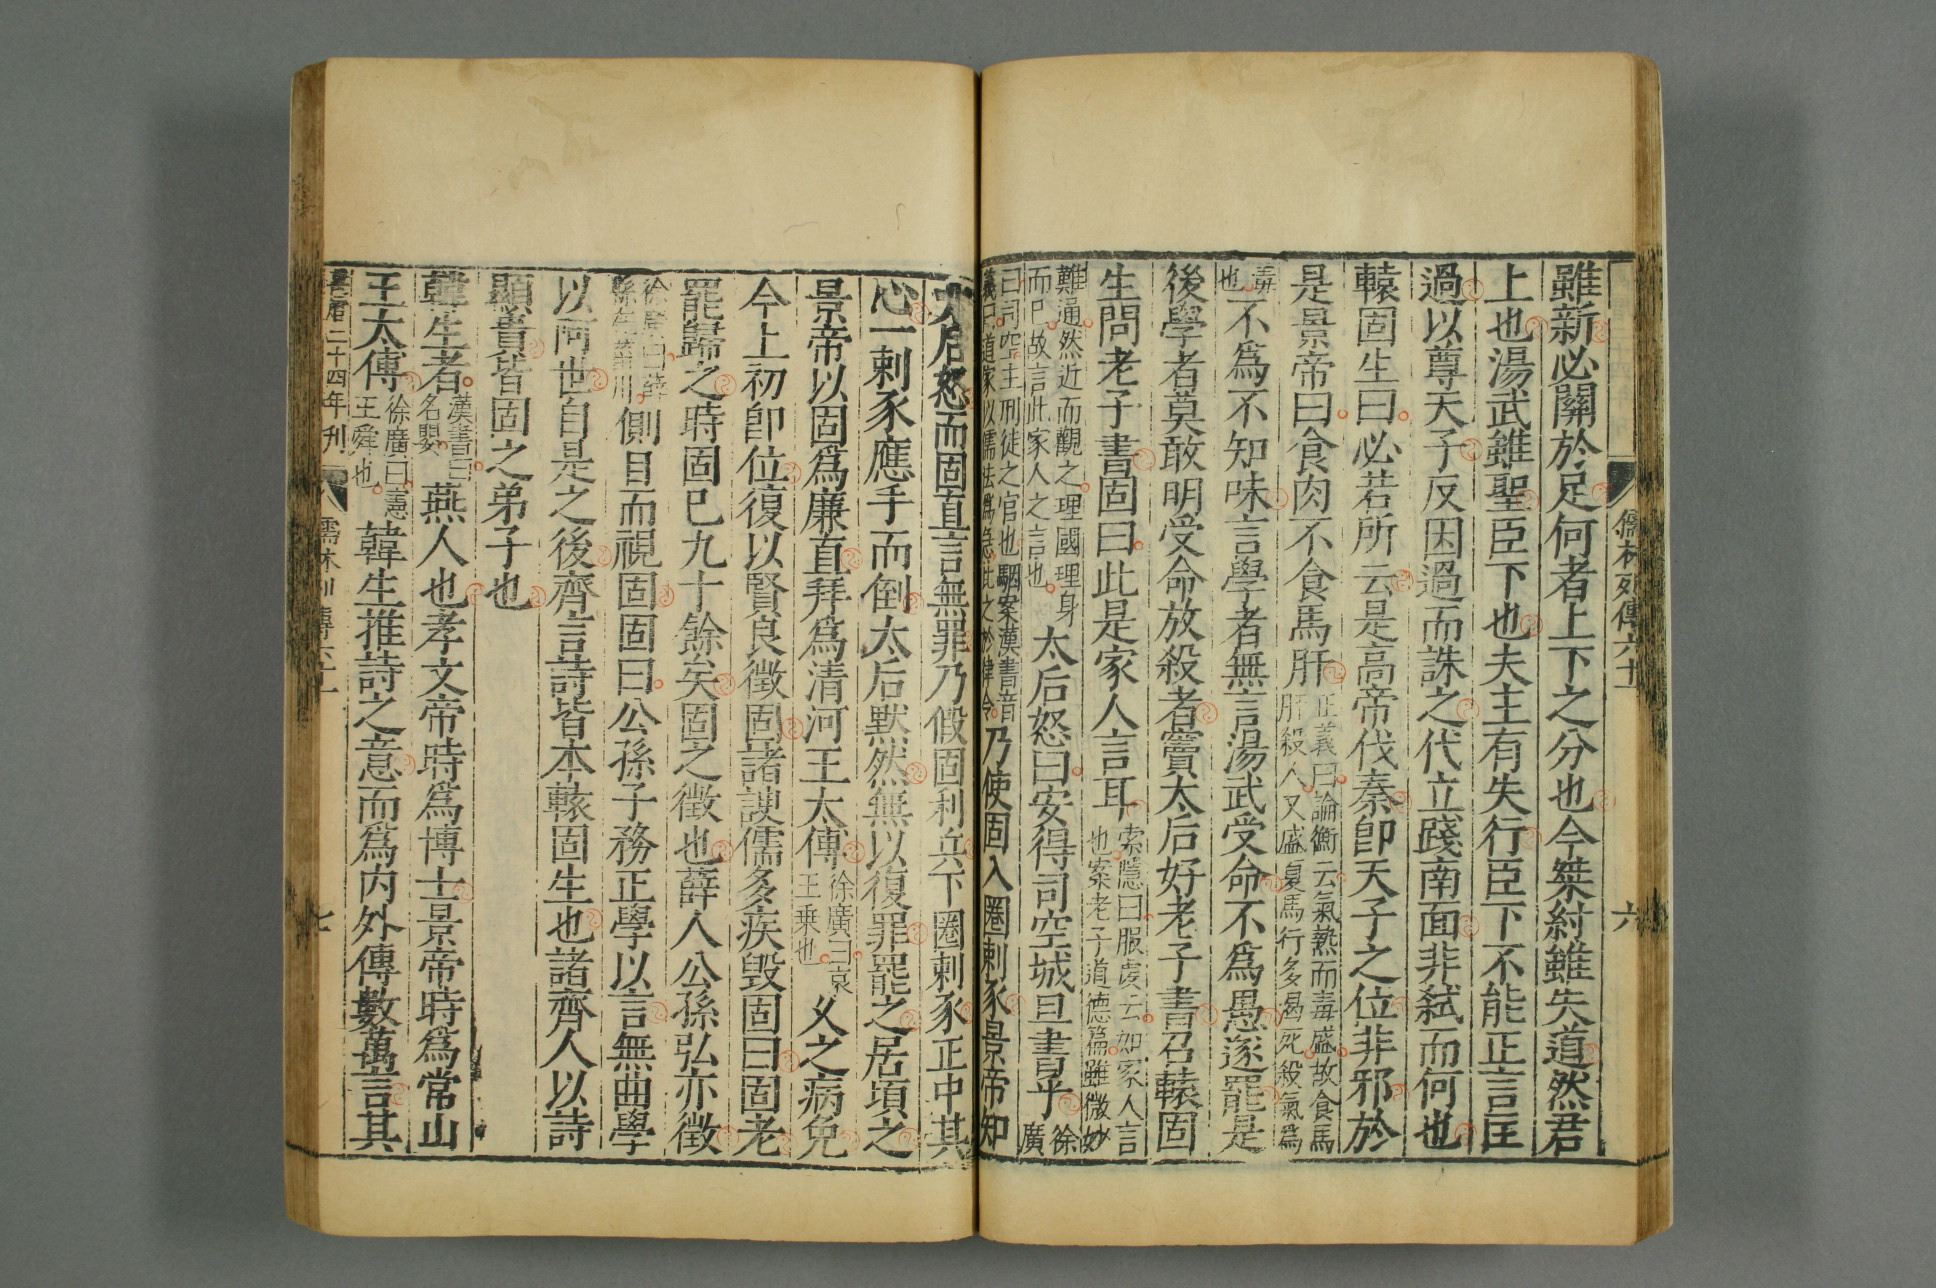 儒林列傳六十一
六
雖新必關於足何者上下之分也今桀紂雖失道然君
上也湯武雖聖臣下也夫主有失行臣下不能正言匡
過以尊天子反因過而誅之代立踐南面非弑而何也
轅固生曰必若所云是高帝伐秦卽天子之位非邪於
是景帝曰食肉不食馬肝正義曰論衡云氣熱而毒盛故食馬
肝殺人又盛夏馬行多暍死殺氣爲
毒
也不爲不知味言學者無言湯武受命不爲愚遂罷是
後學者莫敢明受命放殺者竇太后好老子書召轅固
生問老子書固曰此是家人言耳索隱曰服虔云如家人言
也案老子道德篇雖微妙
難通然近而觀之理國理身
而已故言此家人之言也太后怒曰安得司空城旦書乎徐
廣
曰司空主刑徒之官也駰案漢書音
義曰道家以儒法爲急比之於律令乃使固入圈刺豕景帝知
太后怒而固直言無罪乃假固利兵下圈刺豕正中其
心一刺豕應手而倒太后默然無以復罪罷之居頃之
景帝以固爲廉直拜爲清河王太傅徐廣曰哀
王乗也乆之病免
今上初卽位復以賢良徵固諸諛儒多疾毀固曰固老
罷歸之時固巳九十餘矣固之徵也薛人公孫弘亦徵
側目而視固固曰公孫子務正學以言無曲學
以阿世自是之後齊言詩皆本轅固生也諸齊人以詩
顯貴皆固之弟子也
韓生者漢書曰
名嬰燕人也孝文帝時爲博士景帝時爲常山
王太傅徐廣曰憲
王舜也韓生推詩之意而爲内外傳數萬言其
二十四年刊
儒林列傳六十一
七